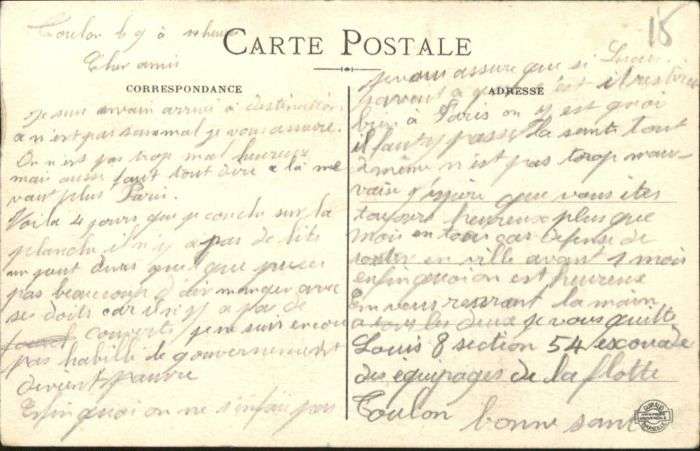 Toulon le 9 à heures
15
CARTE POSTALE
Cher amis
CORRESPONDANCE
ADRESSE
Je suis arrivé à destination
ce n'est pas sans mal je vous assure.
On n'es pas trop mal heureux
mais aussi faut tout dire ça là ne
vaut plus Paris.
Voila 4 jours que je couche sur la
planche il n'y a pas de lits
un peut dure quelque puces
pas beaucoup d'air manger avec
ses doits car il n'y a pas de
couverts, je ne suis encore
pas habillé de gouvernement
devient pauvre
Enfin quoi on ne s'en fait pas
je vous assure que si
c'est il
bien à Paris on y est quoi
il faut y passer la santé tout
de même n'est pas trop mau-
vaise j'espère que vous êtes
toujours heureux plus que
moi en tout cas défense de
sortir en ville avant 1 mois
enfin quoi on est heureux
En vous serrant la main
a tous les deux je vous quitte
Louis 8 section 54 escouade
des equipages de la flotte
Toulon bonne santé